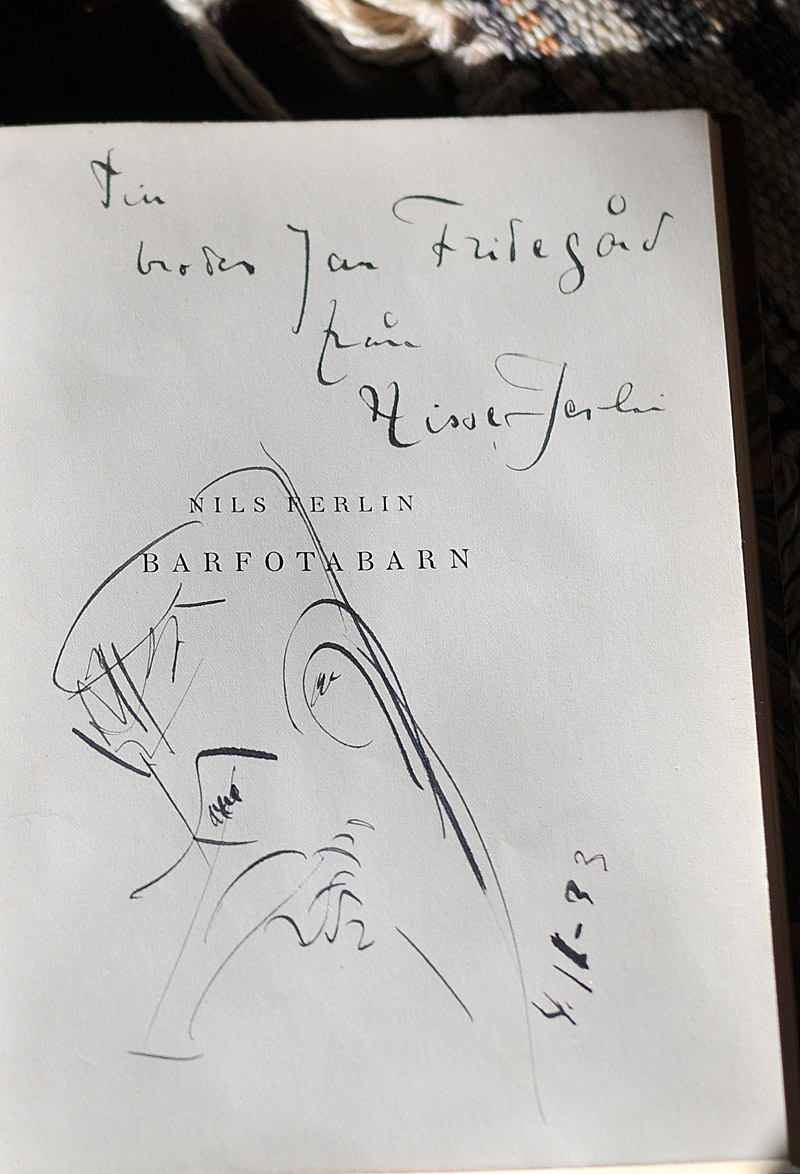 broder Jan Fridegård
från
Nisse Ferlin
NILS FERLIN
BARFOTABARN
33